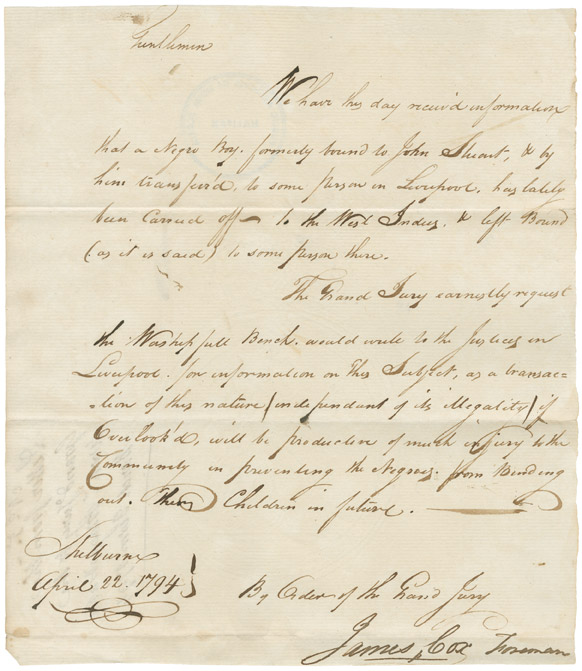 Gentlemen
We have this day receiv'd information
that a Negro Boy. formerly bound to John Stuart, & by
him transfer'd, to some person in Liverpool. has lately
been Carried off - to the West Indies. & left Bound
(as it is said) to some person there.
The Grand Jury earnestly request
the Worshipfull Bench. would write to the Justices in
Liverpool. for information on this Subject, as a transac=
=tion of this nature (independant of its Illegality) if
Overlook'd, will be productive of much injury to the
Community in preventing the Negroes. from Binding
out. Their Children in future.
Shelburne
April 22. 1794.
By Order of the Grand Jury
James Cox Foreman